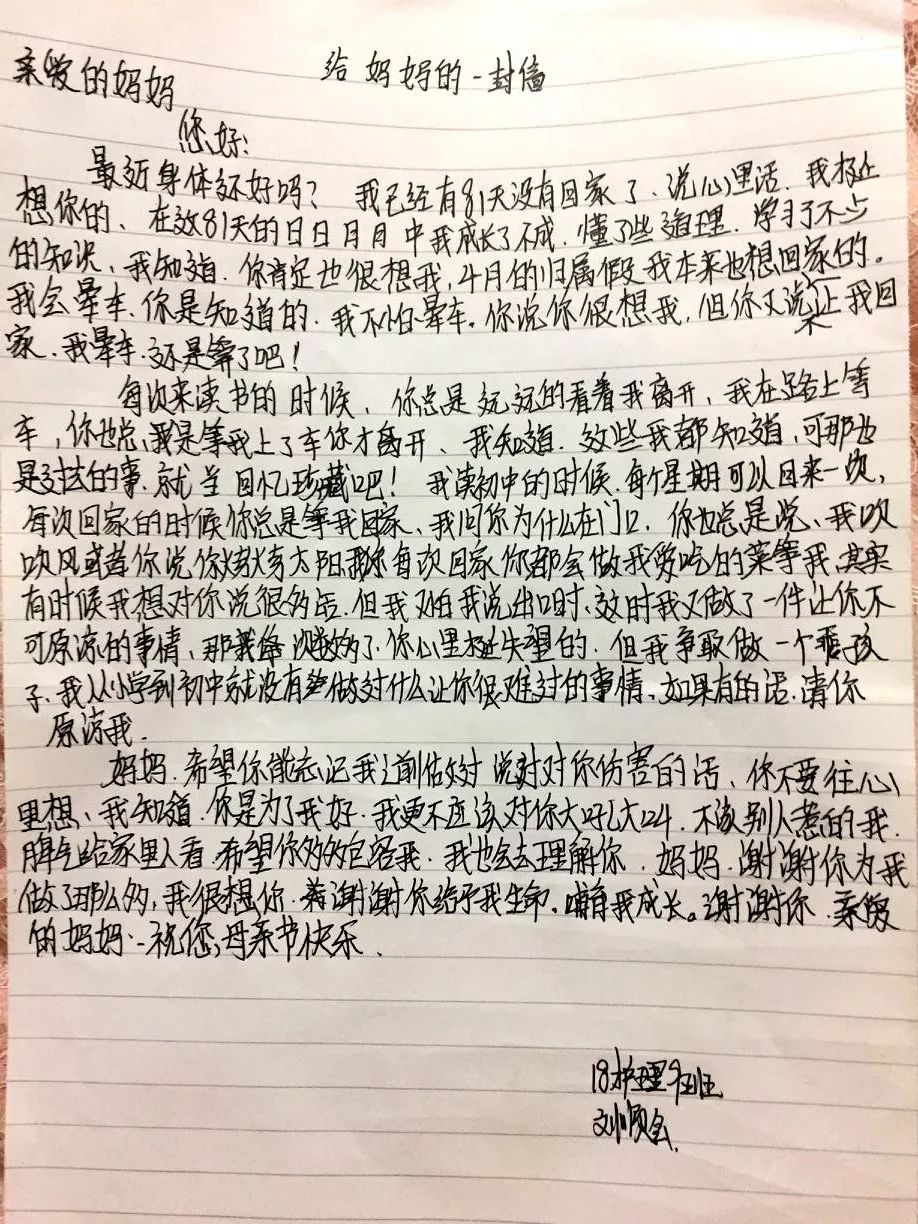 给妈妈的一封信
亲爱的妈妈
您好:
最近身体还好吗？我已经有81天没有回家了、说心里话、我挺
想你的、在这81天的日日月月中我成长了不成、懂了些道理、学习了不少
的知识、我知道、你肯定也很想我,4月的归属假我本来也想回家的。
我会晕车、你是知道的、我不怕晕车。你说你很想我,但你又说不让我回
家、我晕车、还是算了吧！
每次来读书的时候、你总是远远的看着我离开、我在路上等
车,你也总是等我上了车你才离开、我知道、这些我都知道,可那也
是过去的事、就当回忆珍藏吧！我读初中的时候、每个星期可以回来一次,
每次回家的时候你总是等我回家、我问你为什么在门口、你也总是说、我吹
吹风或者你说你烤烤太阳每次回家你都会做我爱吃的菜等我、其实
有时候我想对你说很多话、但我又怕我说出口时、这时我又做了一件让你不
可原凉的事情、那你心里挺失望的、但我争取做一个乖孩
子、我从小学到初中就没有做过什么让你很难过的事情、如果有的话、请你
原凉我.
妈妈、希望你能忘记我之前做过说过对你伤害的话、你不要往心
里想、我知道、你是为了我好、我更不应该对你大吼大叫、不该别人惹的我、
脾气给家里人看、希望你多多包容我、我也会去理解你、妈妈、谢谢你为我
做了那么多,我很想你、谢谢你给予我生命、哺育我成长。谢谢你、亲爱
的妈妈、祝您,母亲节快乐、
18护理9班
刘顺会